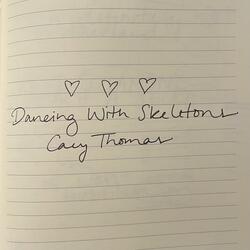 ♡ ♡ ♡
Dancing With Skeletons
Cary Thomas